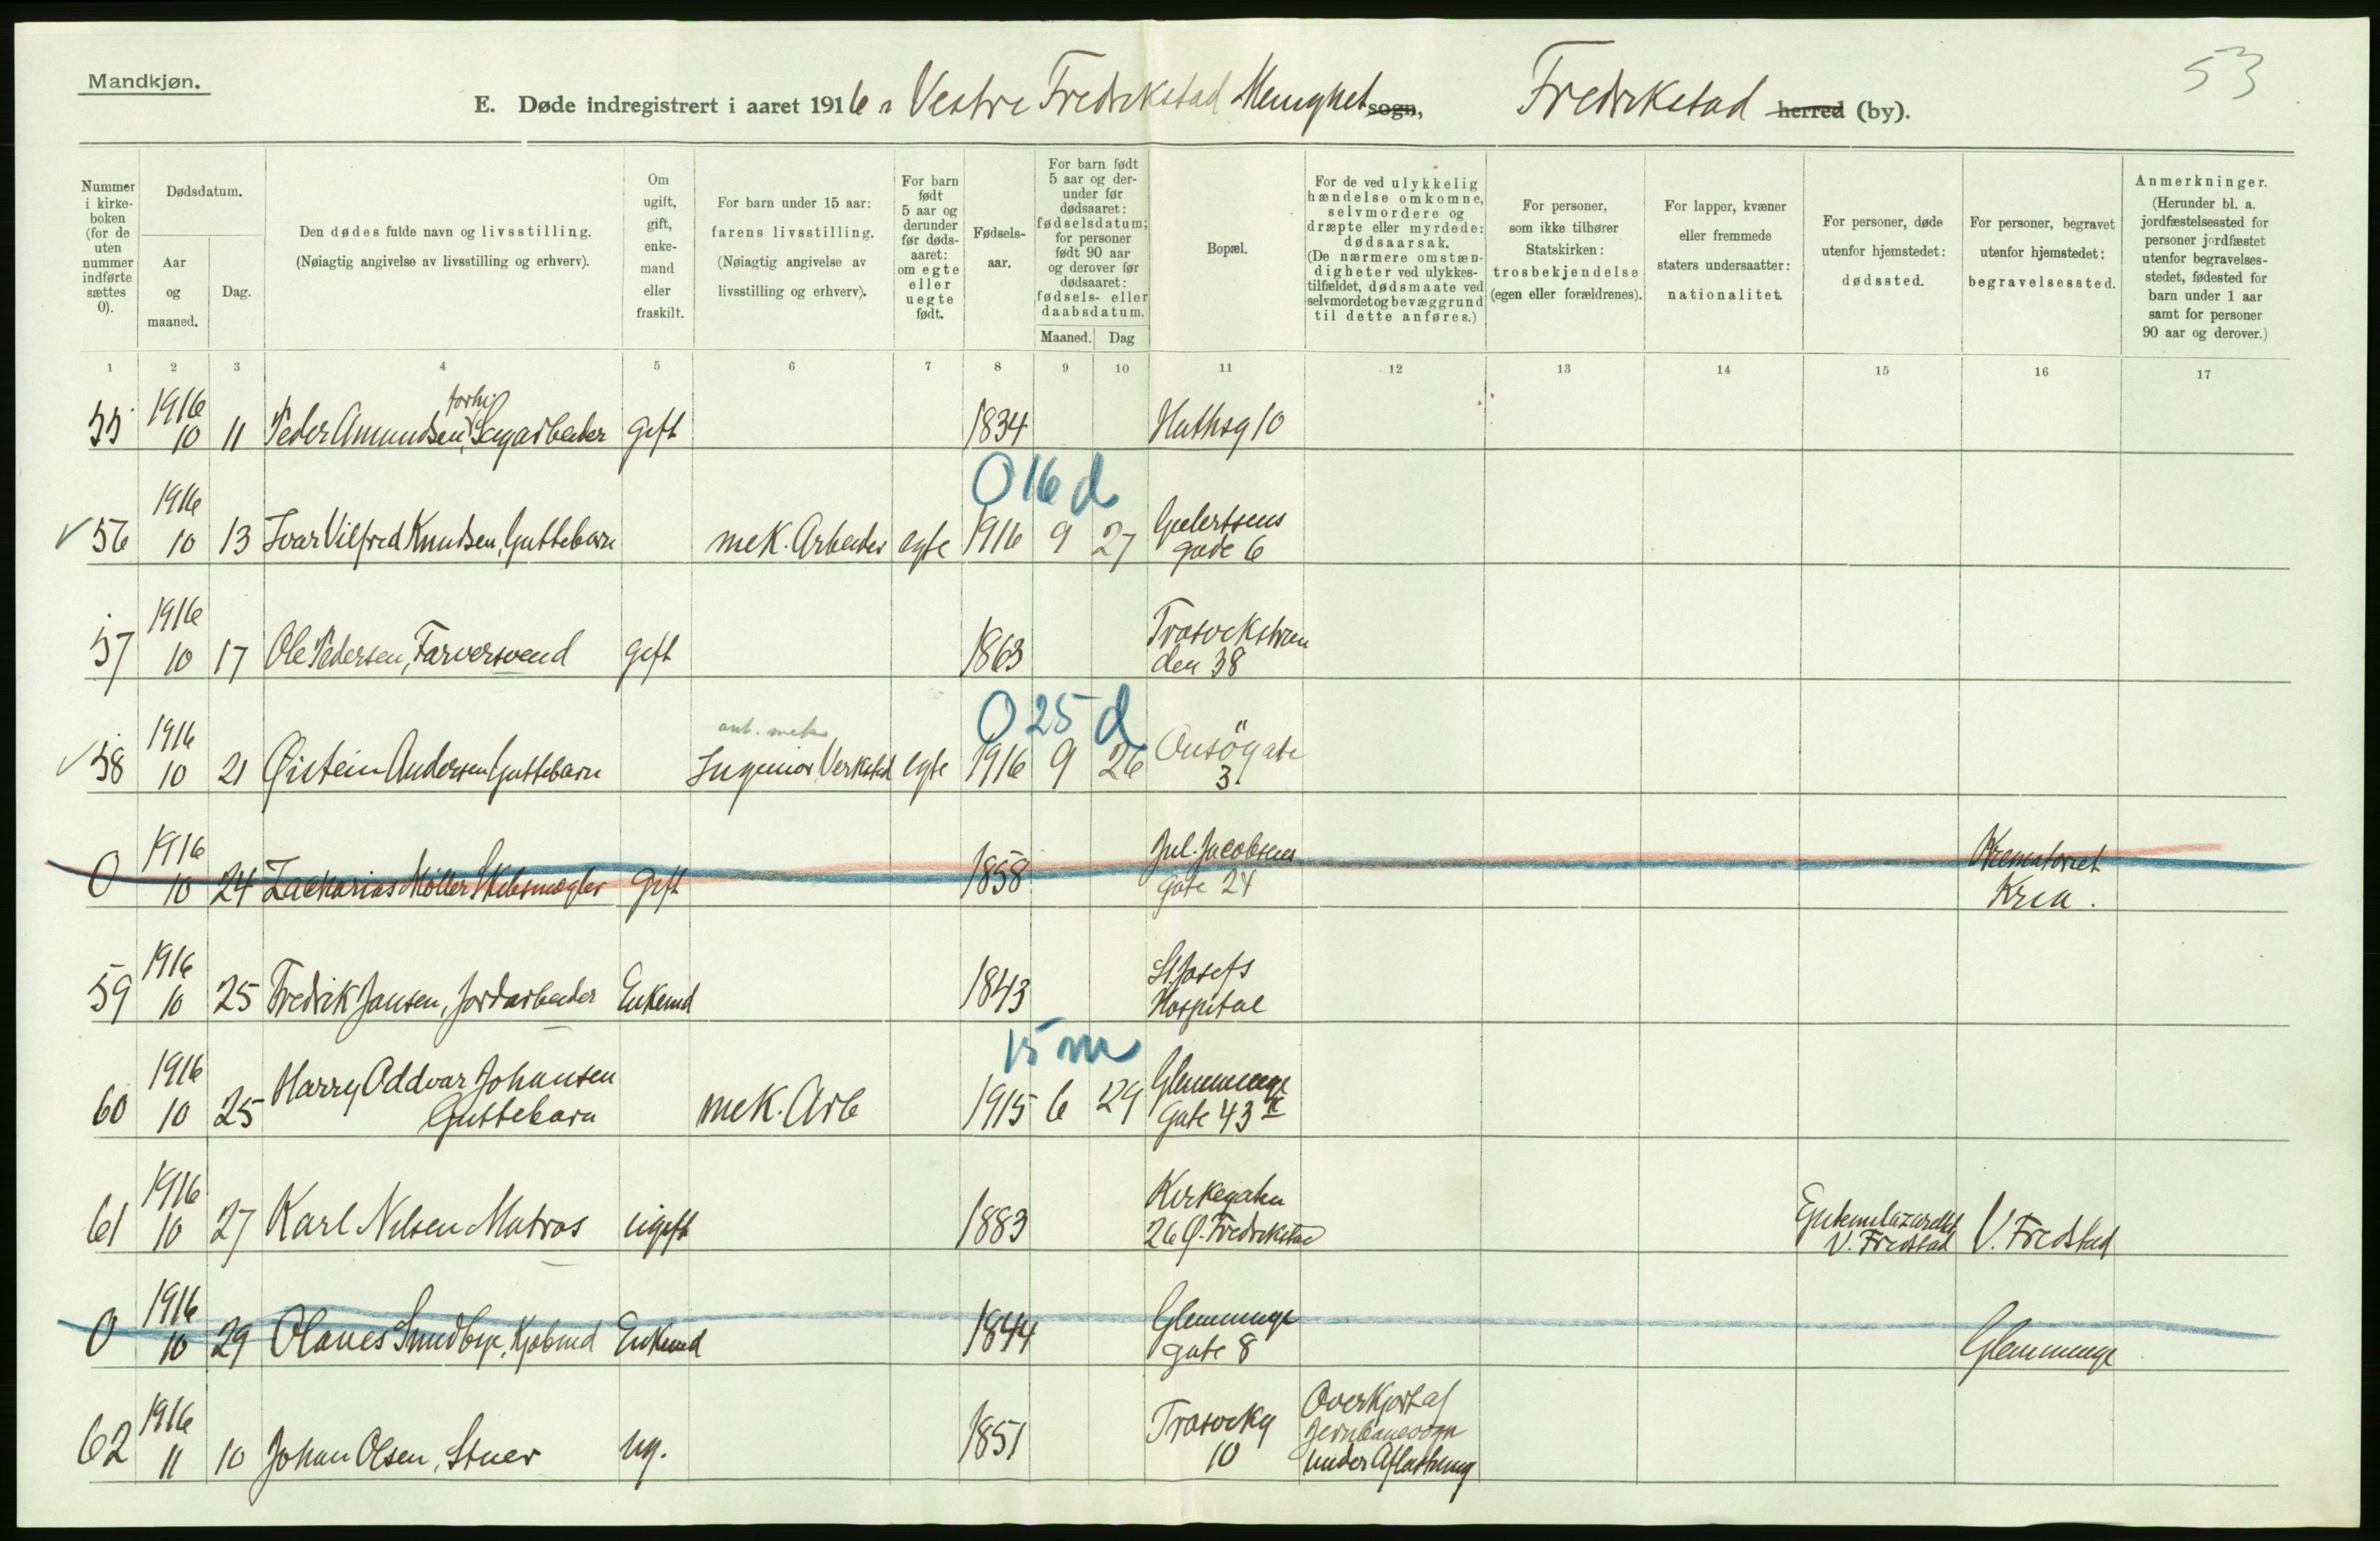 Mandkjøn.
53
E. Døde indregistrert i aaret 1916 i Vestre Fredrikstad Menighet sogn, Fredrikstad herred (by).
Nummer i kirke-boken (for de uten nummer indførte sættes 0).
Dødsdatum.
Aar og maaned.
Dag.
Den dødes fulde navn og livsstilling.
(Nøiagtig angivelse av livsstilling og erhverv).
Om ugift, gift, enke-mand eller fraskilt.
For barn under 15 aar: farens livsstilling.
(Nøiagtig angivelse av livsstilling og erhverv).
For barn født 5 aar og derunder før døds-aaret: om egte eller uegte født.
Fødsels-aar.
For barn født 5 aar og der-under før dødsaaret: fødselsdatum; for personer født 90 aar og derover før dødsaaret: fødsels- eller daabsdatum.
Maaned. Dag
Bopæl.
For de ved ulykkelig hændelse omkomne, selvmordere og dræpte eller myrdede: dødsaarsak.
(De nærmere omstæn-digheter ved ulykkes-tilfældet, dødsmaate ved selvmordet og bevæggrund til dette anføres.)
For personer, som ikke tilhører Statskirken: trosbekjendelse (egen eller forældrenes).
For lapper, kvæner eller fremmede staters undersaatter: nationalitet.
For personer, døde utenfor hjemstedet: dødssted.
For personer, begravet utenfor hjemstedet: begravelsessted.
Anmerkninger.
(Herunder bl. a. jordfæstelsessted for personer jordfæstet utenfor begravelses-stedet, fødested for barn under 1 aar samt for personer 90 aar og derover.)
1 2 3 4 5 6 7 8 9 10 11 12 13 14 15 16 17
55 1916 10 11 Peder Amundsen, forhv Sagarbeider gift 1834 Huthsg 10
0 16 d
56 1916 10 13 Ivar Vilfred Knudsen, Guttebarn mek. Arbeider egte 1916 9 27 Gulertsens gade 6
57 1916 10 17 Ole Pedersen, Farversvend gift 1863 Trosvikstranden 38
0 25 d
58 1916 10 21 Øistein Andersen Guttebarn Ingeniør Verksted egte 1916 9 26 Onsögate 3.
0 1916 10 24 Zacharias Møller Skibsmægler gift 1858 Jul. Jacobsens gate 24 Krematoriet Kria.
59 1916 10 25 Fredrik Jansen, Jordarbeider Enkemd 1843 St. Josefs Hospital
15 m
60 1916 10 25 Harry Oddvar Johansen Guttebarn mek. Arb 1915 6 29 Glemminge Gate 43
61 1916 10 27 Karl Nilsen Matros ugift 1883 Kirkegaten 26 Ø. Fredrikstad V. Fredstad V. Fredstad
0 1916 10 29 Olaves Sundbye, Kjøbmd Enkemd 1844 Glemminge gate 8 Glemminge
62 1916 11 10 Johan Olsen, Stuer ug. 1851 Trosvikg 10 Overkjørt af Jernbanevogn under Aflastning